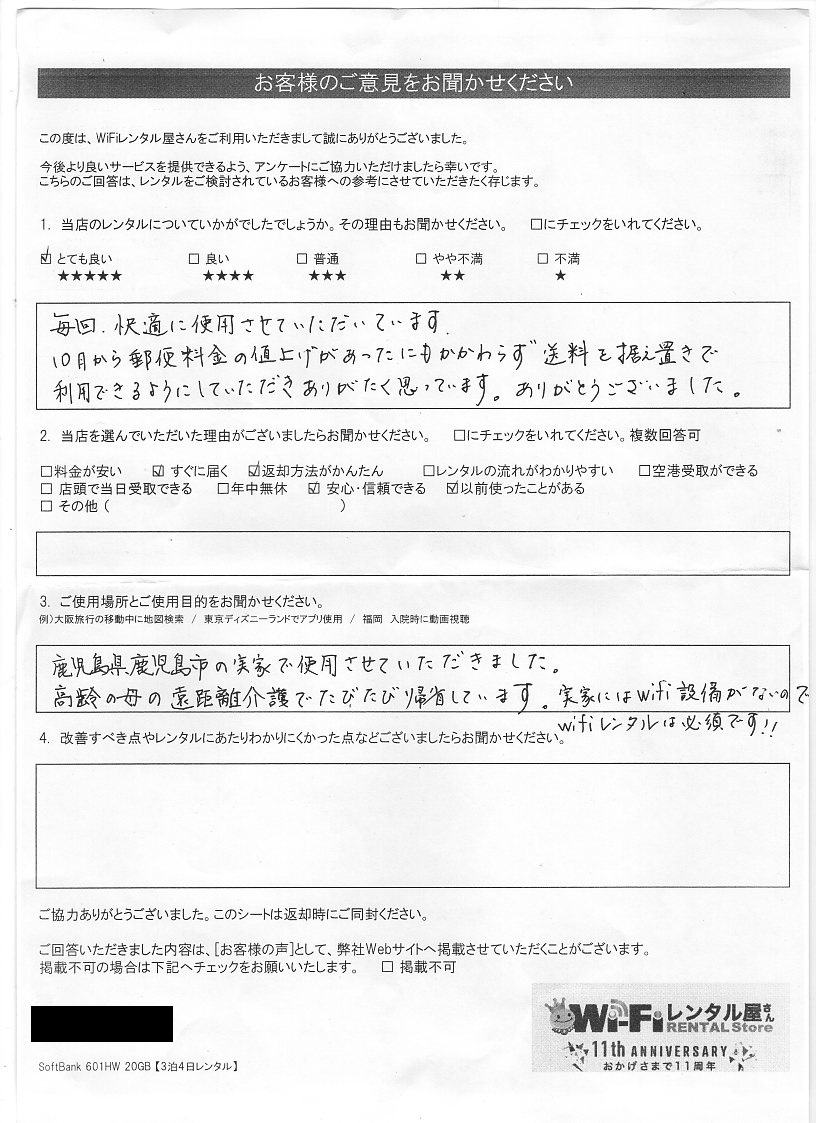 お客様のご意見をお聞かせください
この度は、WiFiレンタル屋さんをご利用いただきまして誠にありがとうございました。
今後より良いサービスを提供できるよう、アンケートにご協力いただけましたら幸いです。
こちらのご回答は、レンタルをご検討されているお客様への参考にさせていただきたく存じます。
1. 当店のレンタルについていかがでしたでしょうか。その理由もお聞かせください。 □にチェックをいれてください。
☑ とても良い □ 良い □ 普通 □ やや不満 □ 不満
★★★★★ ★★★★ ★★★ ★★ ★
毎回、快適に使用させていただいています。
10月から郵便料金の値上げがあったにもかかわらず送料を据え置きで
利用できるようにしていただきありがたく思っています。ありがとうございました。
2. 当店を選んでいただいた理由がございましたらお聞かせください。 □にチェックをいれてください。複数回答可
□料金が安い ☑ すぐに届く ☑返却方法がかんたん □レンタルの流れがわかりやすい □空港受取ができる
□ 店頭で当日受取できる □年中無休 ☑ 安心・信頼できる ☑以前使ったことがある
□ その他 ( )
3. ご使用場所とご使用目的をお聞かせください。
例)大阪旅行の移動中に地図検索 / 東京ディズニーランドでアプリ使用 / 福岡 入院時に動画視聴
鹿児島県鹿児島市の実家で使用させていただきました。
高齢の母の遠距離介護でたびたび帰省しています。実家にはwifi設備がないので
wifiレンタルは必須です!!
4. 改善すべき点やレンタルにあたりわかりにくかった点などございましたらお聞かせください。
ご協力ありがとうございました。このシートは返却時にご同封ください。
ご回答いただきました内容は、[お客様の声]として、弊社Webサイトへ掲載させていただくことがございます。
掲載不可の場合は下記へチェックをお願いいたします。 □ 掲載不可
Wi-Fiレンタル屋さん
RENTAL Store
11th ANNIVERSARY
おかげさまで11周年
SoftBank 601HW 20GB【3泊4日レンタル】